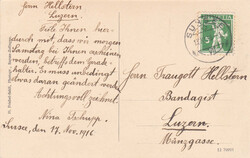 Herrn Hellstern
Luzern.
Teile Ihnen hier-
durch mit, dass wir morgen
Samstag bei Ihnen erscheinen
werden, betreffs dem Grade-
halter. Es muss unbedingt
etwas daran geändert werden.
Achtungsvoll zeichnet
Nina Tschupp
Sursee, den 17. Nov. 1916
Herrn Traugott Hellstern
Bandagist
Luzern.
Münzgasse.